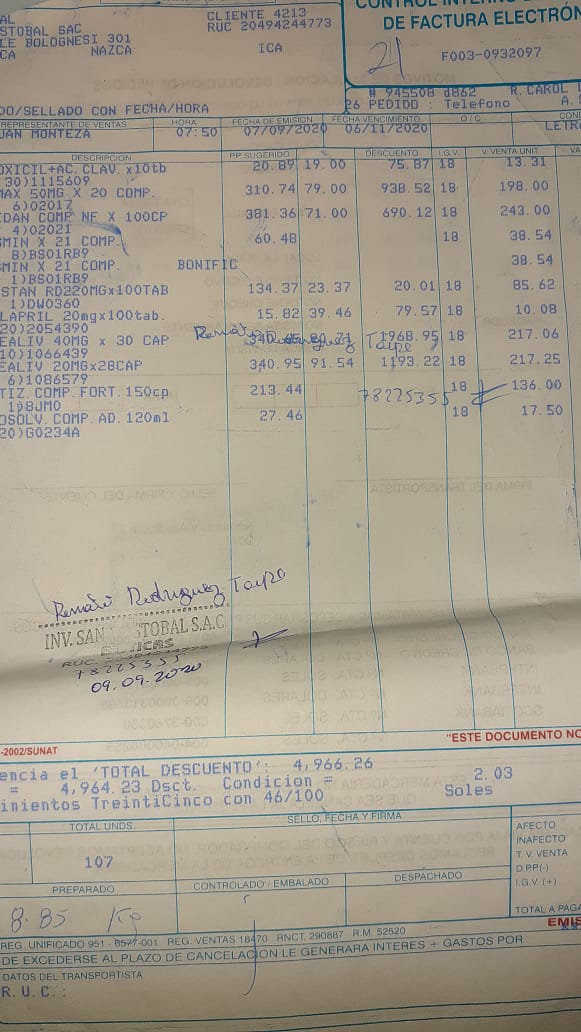 AL
CLIENTE 4213
CONTROL INTERNO D
STOBAL SAC
RUC 20494244773
DE FACTURA ELECTRÓN
LE BOLOGNESI 301
CA NAZCA ICA
21 F003-0932097
# 945508 d862 R. CAROL
DO/SELLADO CON FECHA/HORA
26 PEDIDO : Telefono A.
REPRESENTANTE DE VENTAS HORA FECHA DE EMISION FECHA VENCIMIENTO O/C CON
UAN MONTEZA 07:50 07/09/2020 06/11/2020 LETR
DESCRIPCION P.P. SUGERIDO DESCUENTO I.G.V. V.VENTA UNIT. VA
OXICIL+AC. CLAV. x10tb 20.89 19.00 75.87 18 13.31
30)1115609
MAX 50MG X 20 COMP. 310.74 79.00 938.52 18 198.00
6)02017
EDAN COMP NF X 100CP 381.36 71.00 690.12 18 243.00
4)02021
SMIN X 21 COMP. 60.48 18 38.54
8)BS01RB9
SMIN X 21 COMP. BONIFIC 38.54
1)BS01RB9
STAN RD220MGx100TAB 134.37 23.37 20.01 18 85.62
1)DW0360
LAPRIL 20mgx100tab. 15.82 39.46 79.57 18 10.08
20)2054390
EALIV 40MG x 30 CAP 1968.95 18 217.06
Renato Rodriguez Taipe
10)1066439
EALIV 20MGx28CAP 340.95 91.54 1193.22 18 217.25
6)1086579
TIZ. COMP. FORT. 150cp 213.44 18 136.00
78225355
1)8JM0
OSOLV. COMP. AD. 120ml 27.46 18 17.50
20)G0234A
Renato Rodriguez Taipe
INV. SAN STOBAL S.A.C.
BOTICAS
RUC.
78225355
09.09.2020
-2002/SUNAT
"ESTE DOCUMENTO NO
encia el 'TOTAL DESCUENTO': 4,966.26
= 4,964.23 Dsct. Condicion = 2.03
imientos TreintiCinco con 46/100 Soles
TOTAL UNDS. SELLO, FECHA Y FIRMA
107
AFECTO
INAFECTO
T. V. VENTA
D.P.P.(-)
I.G.V. (+)
PREPARADO CONTROLADO / EMBALADO DESPACHADO
8.85 Kg
TOTAL A PAGA
EMIS
REG. UNIFICADO 951 - 6577-001 REG. VENTAS 18470 RNCT. 290887 R.M. 52520
DE EXCEDERSE AL PLAZO DE CANCELACION LE GENERARA INTERES + GASTOS POR
DATOS DEL TRANSPORTISTA
R.U.C.: